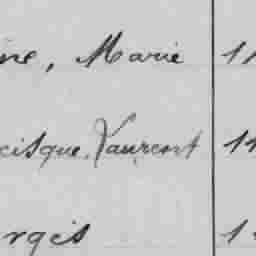 ine, Marie 11
cisque, Laurent 11
orgeis 1